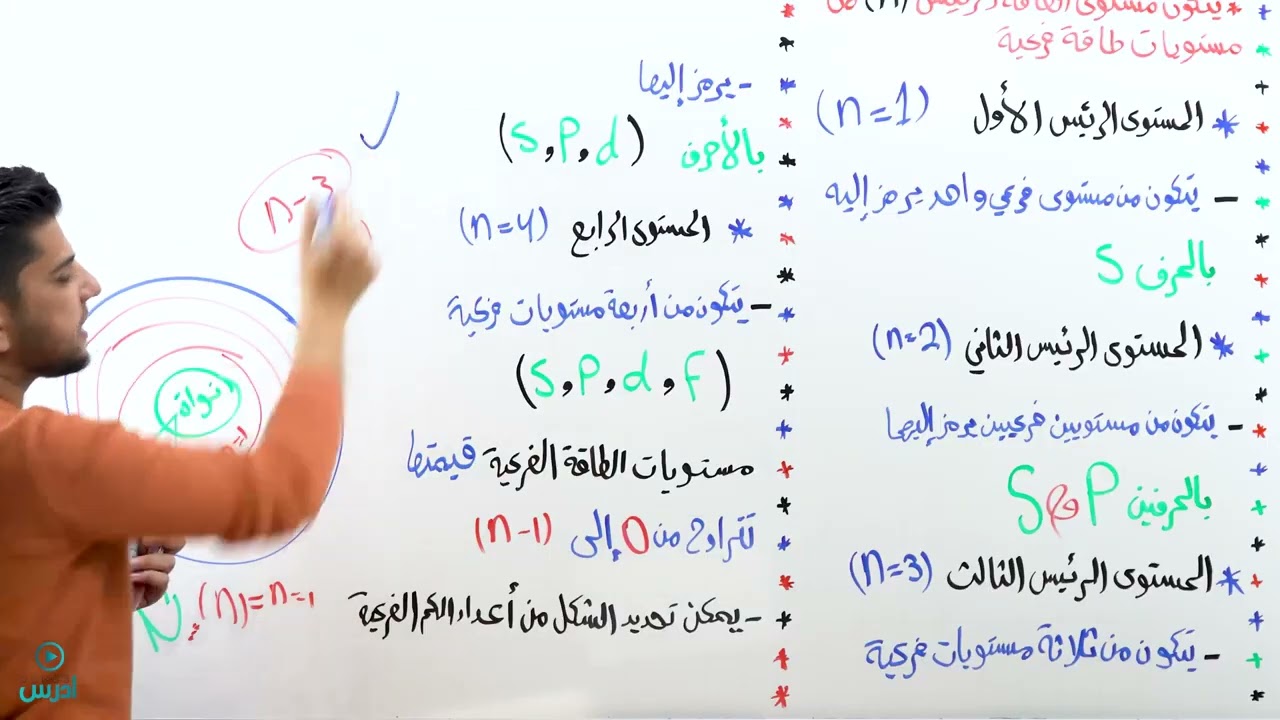 * يتكون مستوى الطاقة الرئيس (n) من
مستويات طاقة فرعية
* المستوى الرئيس الأول (n=1)
- يتكون من مستوى فرعي واحد يرمز إليه
بالحرف S
* المستوى الرئيس الثاني (n=2)
- يتكون من مستويين فرعيين يرمز إليها
بالحرفين S و P
* المستوى الرئيس الثالث (n=3)
- يتكون من ثلاثة مستويات فرعية
- يرمز إليها
بالأحرف (S, P, d)
* المستوى الرابع (n=4)
- يتكون من أربعة مستويات فرعية
(S, P, d, F)
مستويات الطاقة الفرعية قيمتها
تتراوح من 0 إلى (n-1)
- يمكن تحديد الشكل من أعداد الكم الفرعية
نواة
(n)=n-1
أدرس